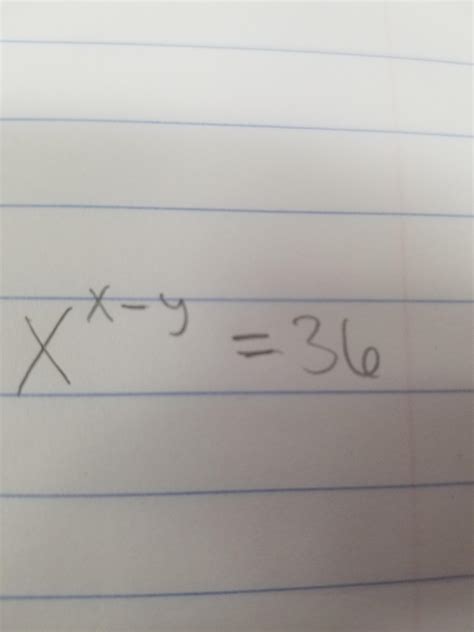 x^{x-y} = 36